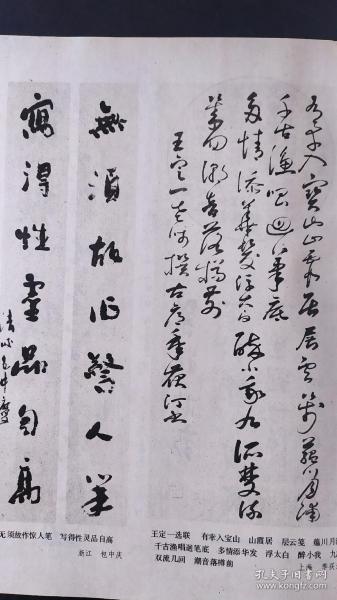 有幸入寶山山霞居層雲箋蘊川月滿
千古漁唱迴筆底
多情添華髮浮太白醉小我九派雙流
幾回潮音落樽前
王定一
無須故作驚人筆
寫得性靈品自高
无须故作惊人笔 写得性灵品自高
浙江 包中庆
王定一选联 有幸入宝山 山霞居 层云笺 蕴川月
千古渔唱廻笔底 多情添华发 浮太白 醉小我 九
双流几回 潮音落樽前
上海 李荻
孔夫子旧书网